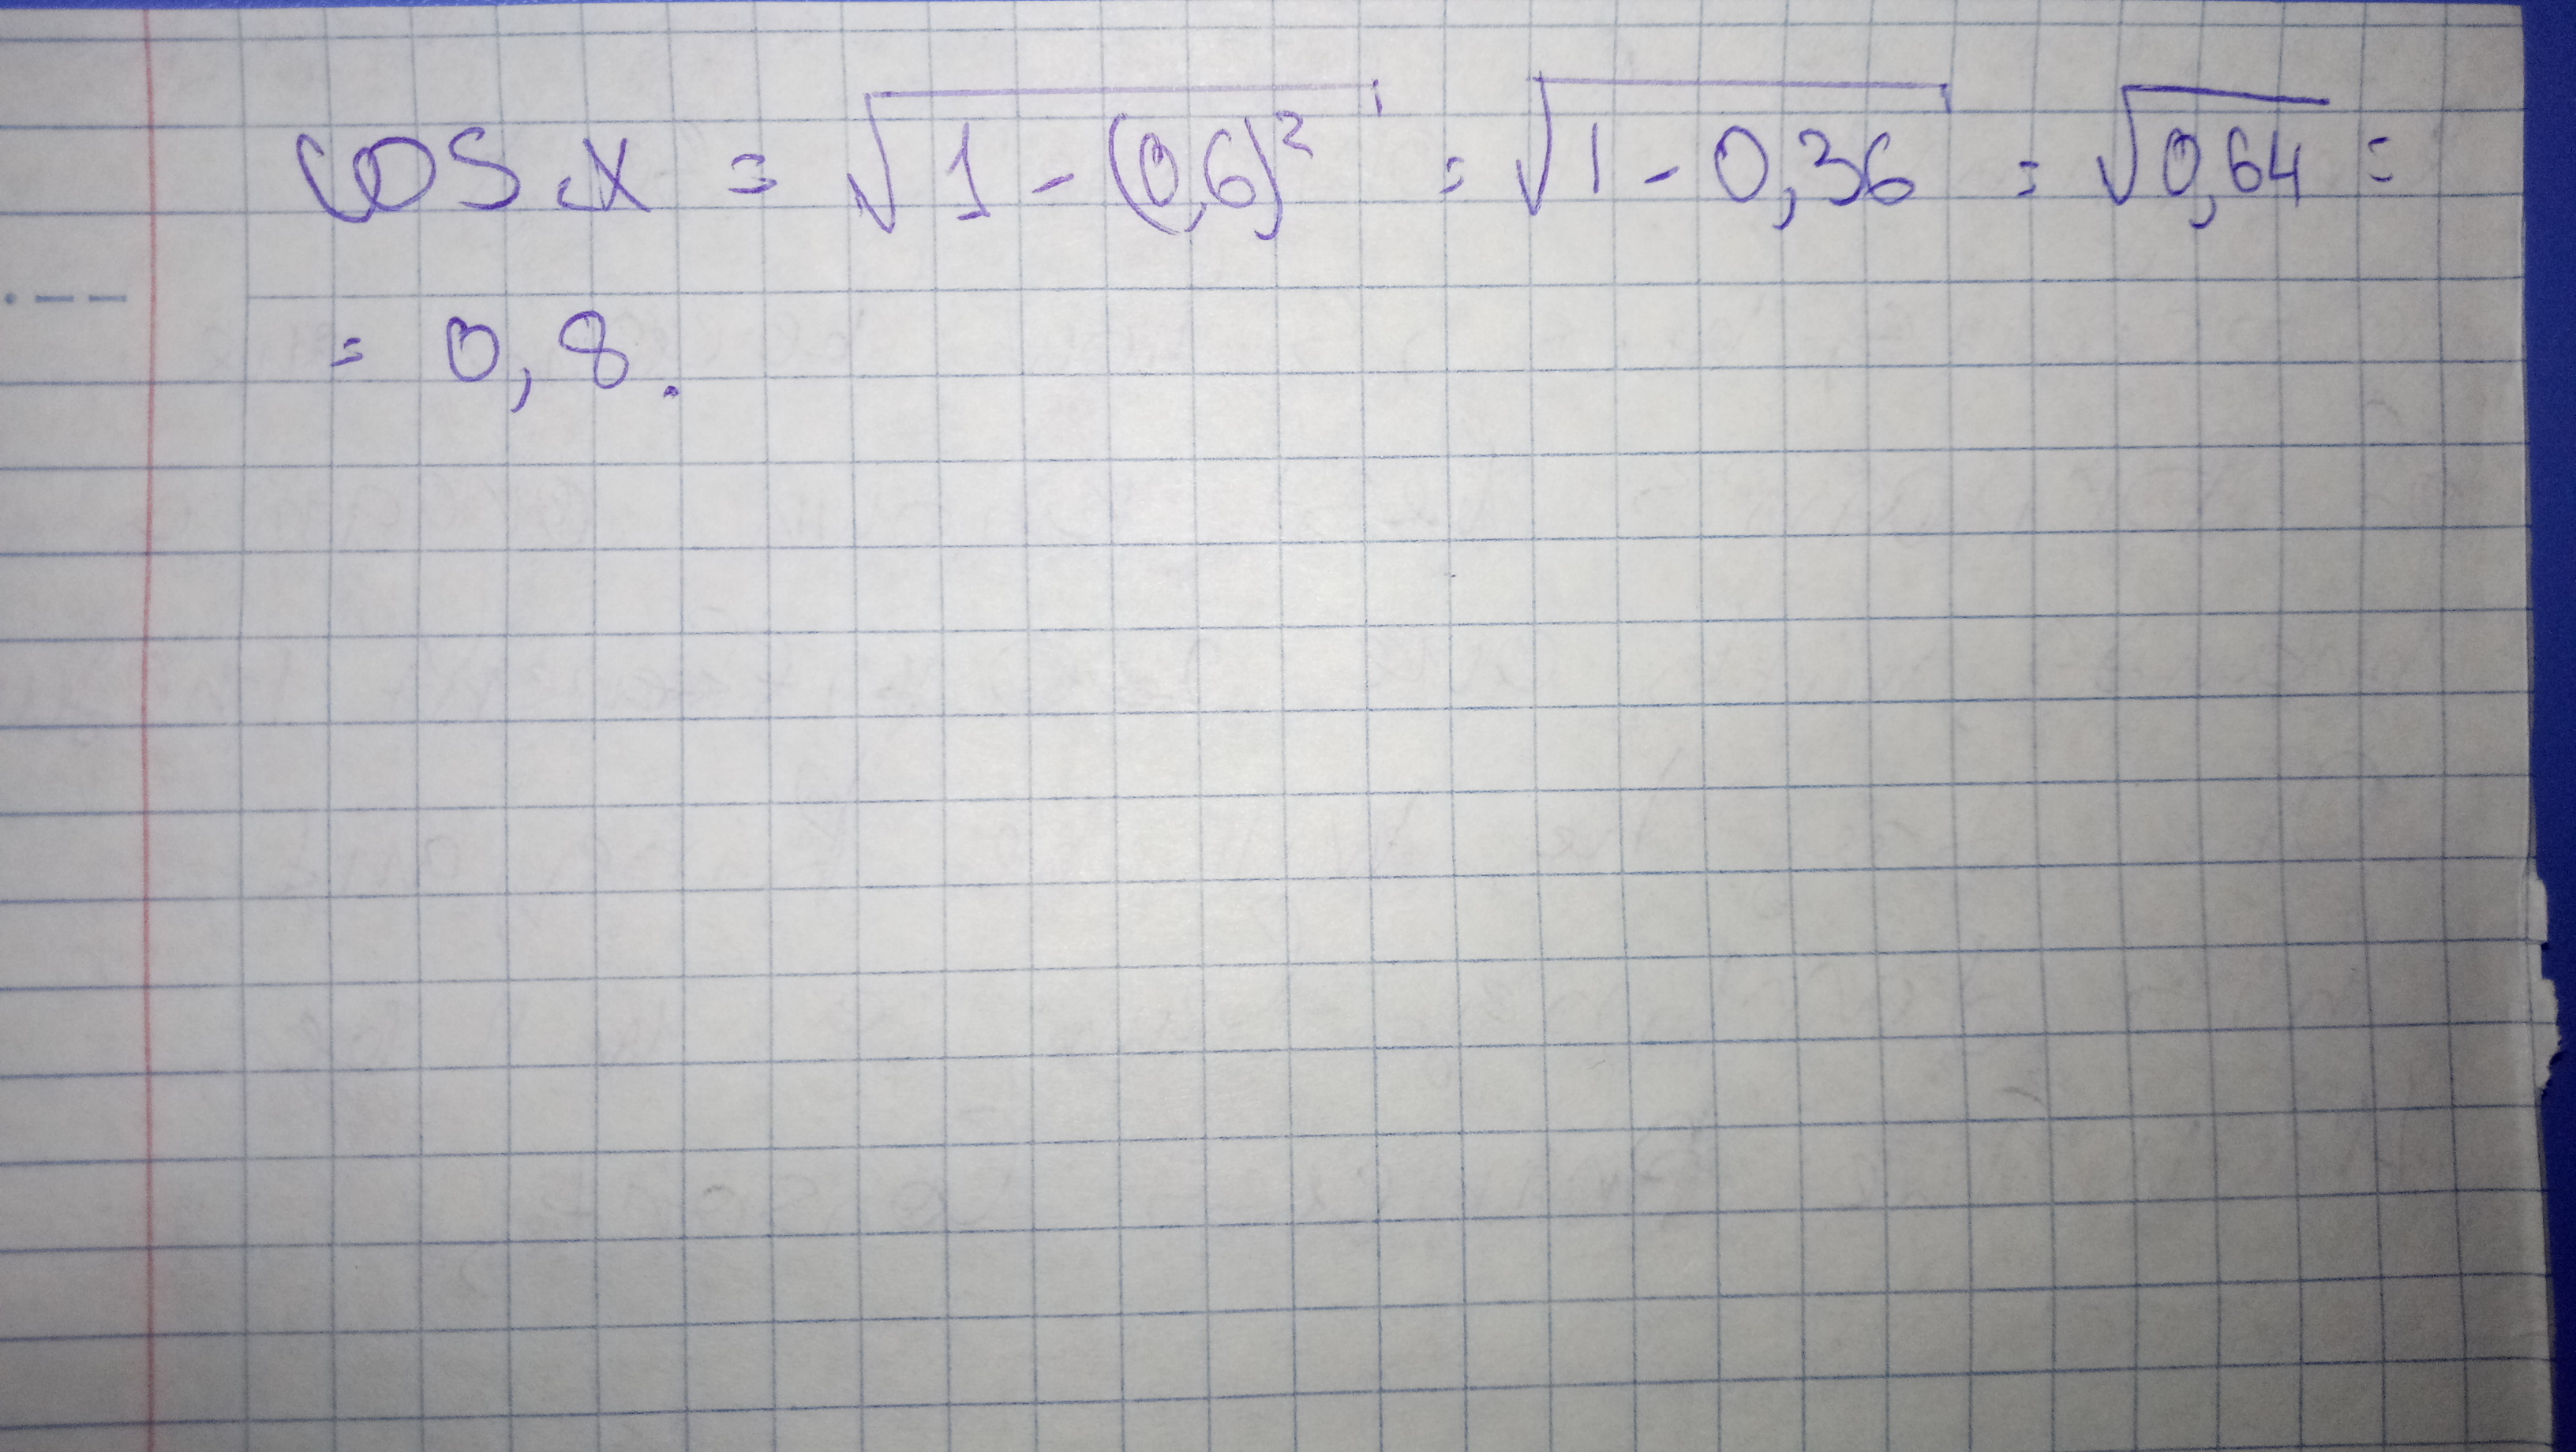 cos x = √1 - (0,6)² = √1 - 0,36 = √0,64 =
= 0,8.